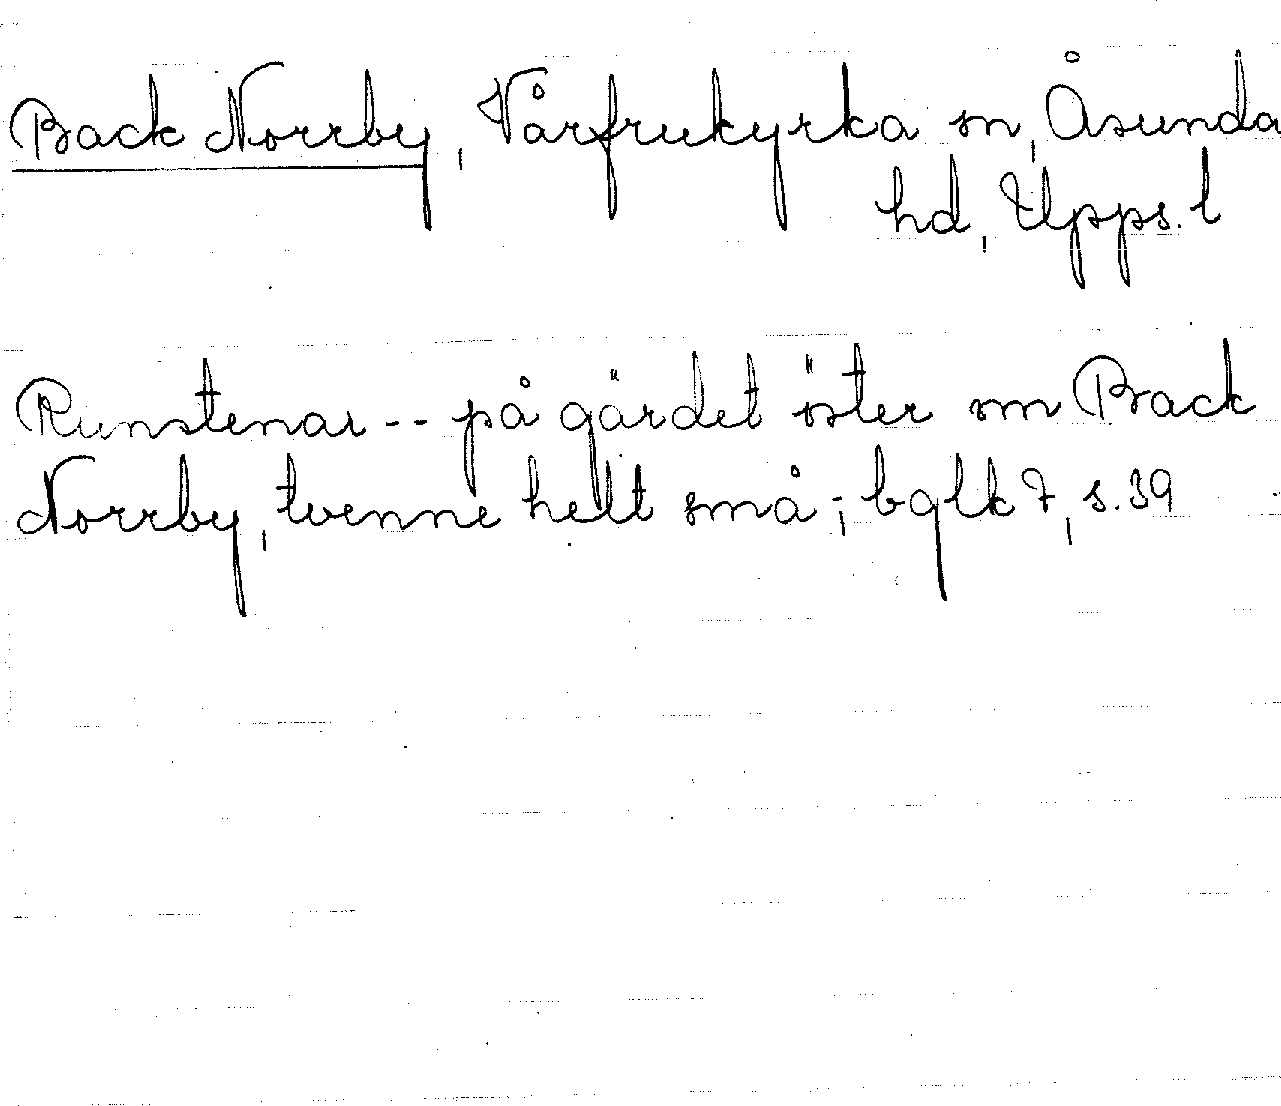 Back Norrby, Vårfrukyrka sn, Åsunda
hd, Upps. l
Runstenar -- på gärdet öster om Back
Norrby, tvenne helt små -; bqlk 7, s. 39